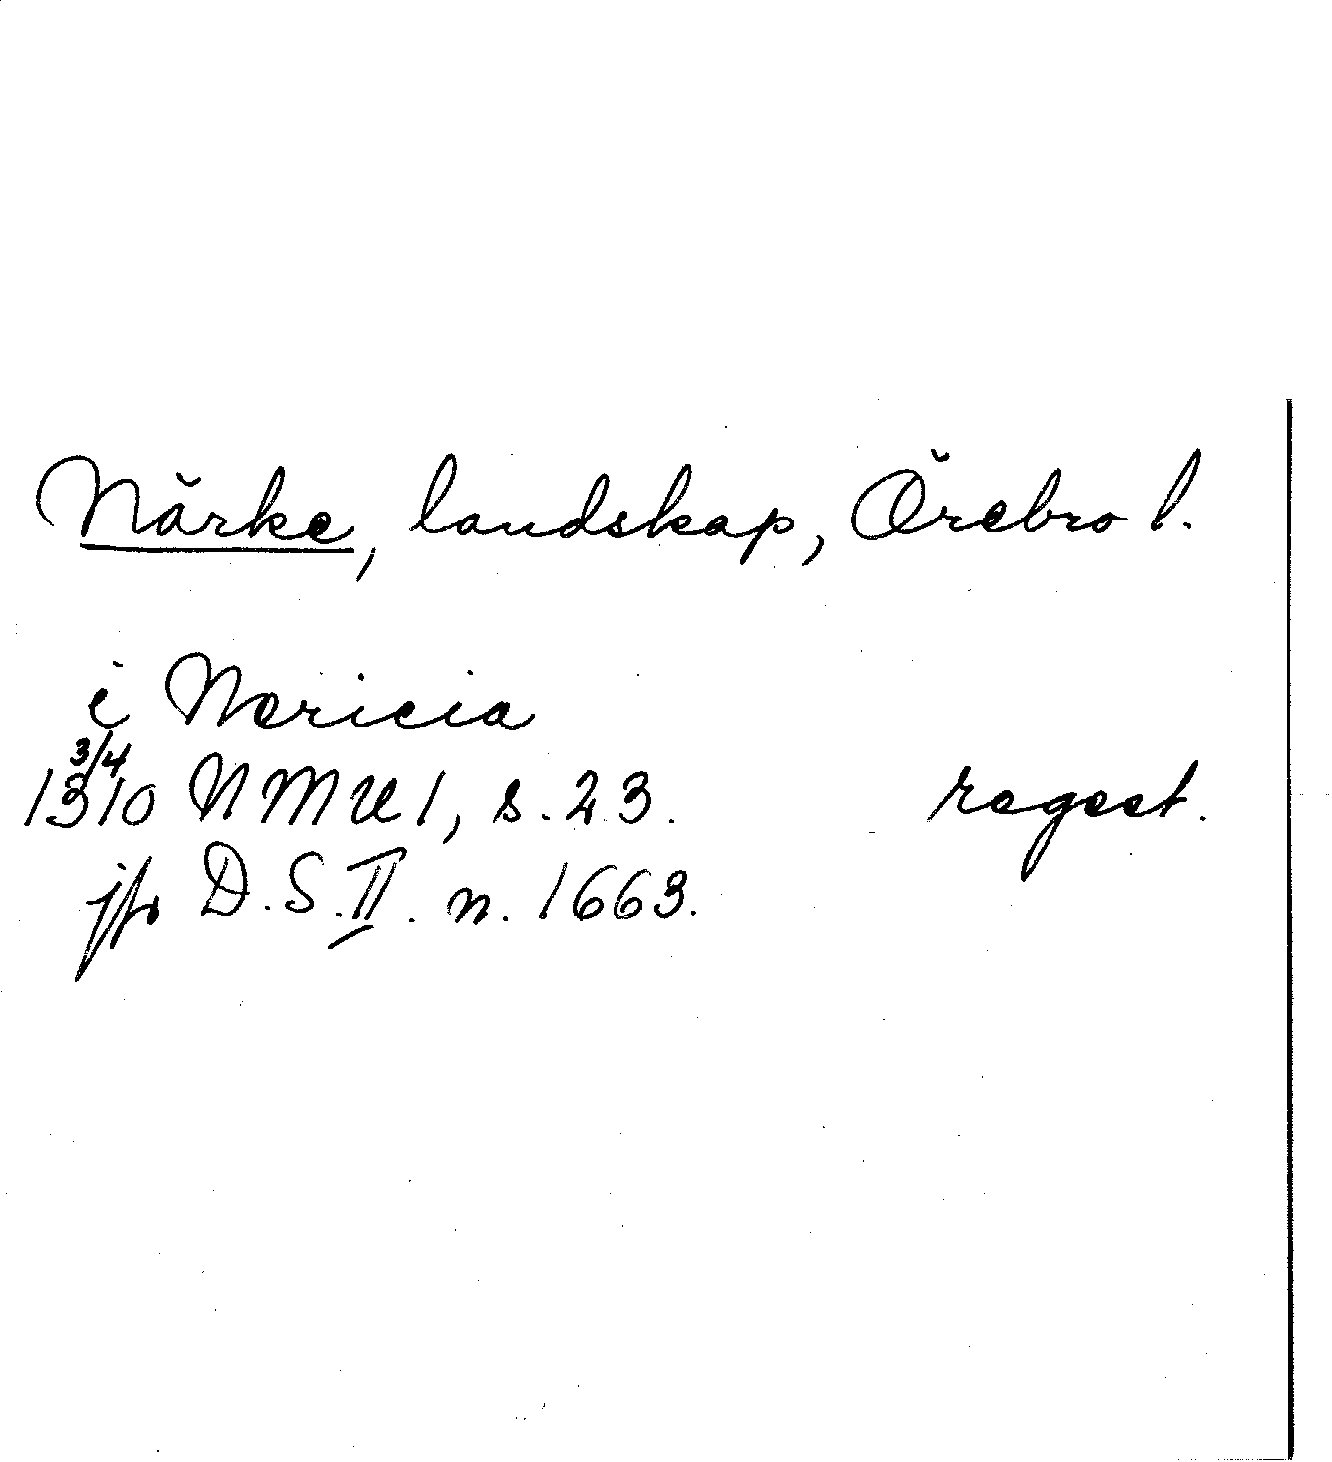 Närke, landskap, Örebro l.
i Nericia
3/4
1310 NMU 1, s. 23. regest.
jfr D.S. II. n. 1663.